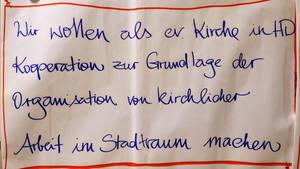 Wir wollen als ev Kirche in HD
Kooperation zur Grundlage der
Organisation von kirchlicher
Arbeit im Stadtraum machen